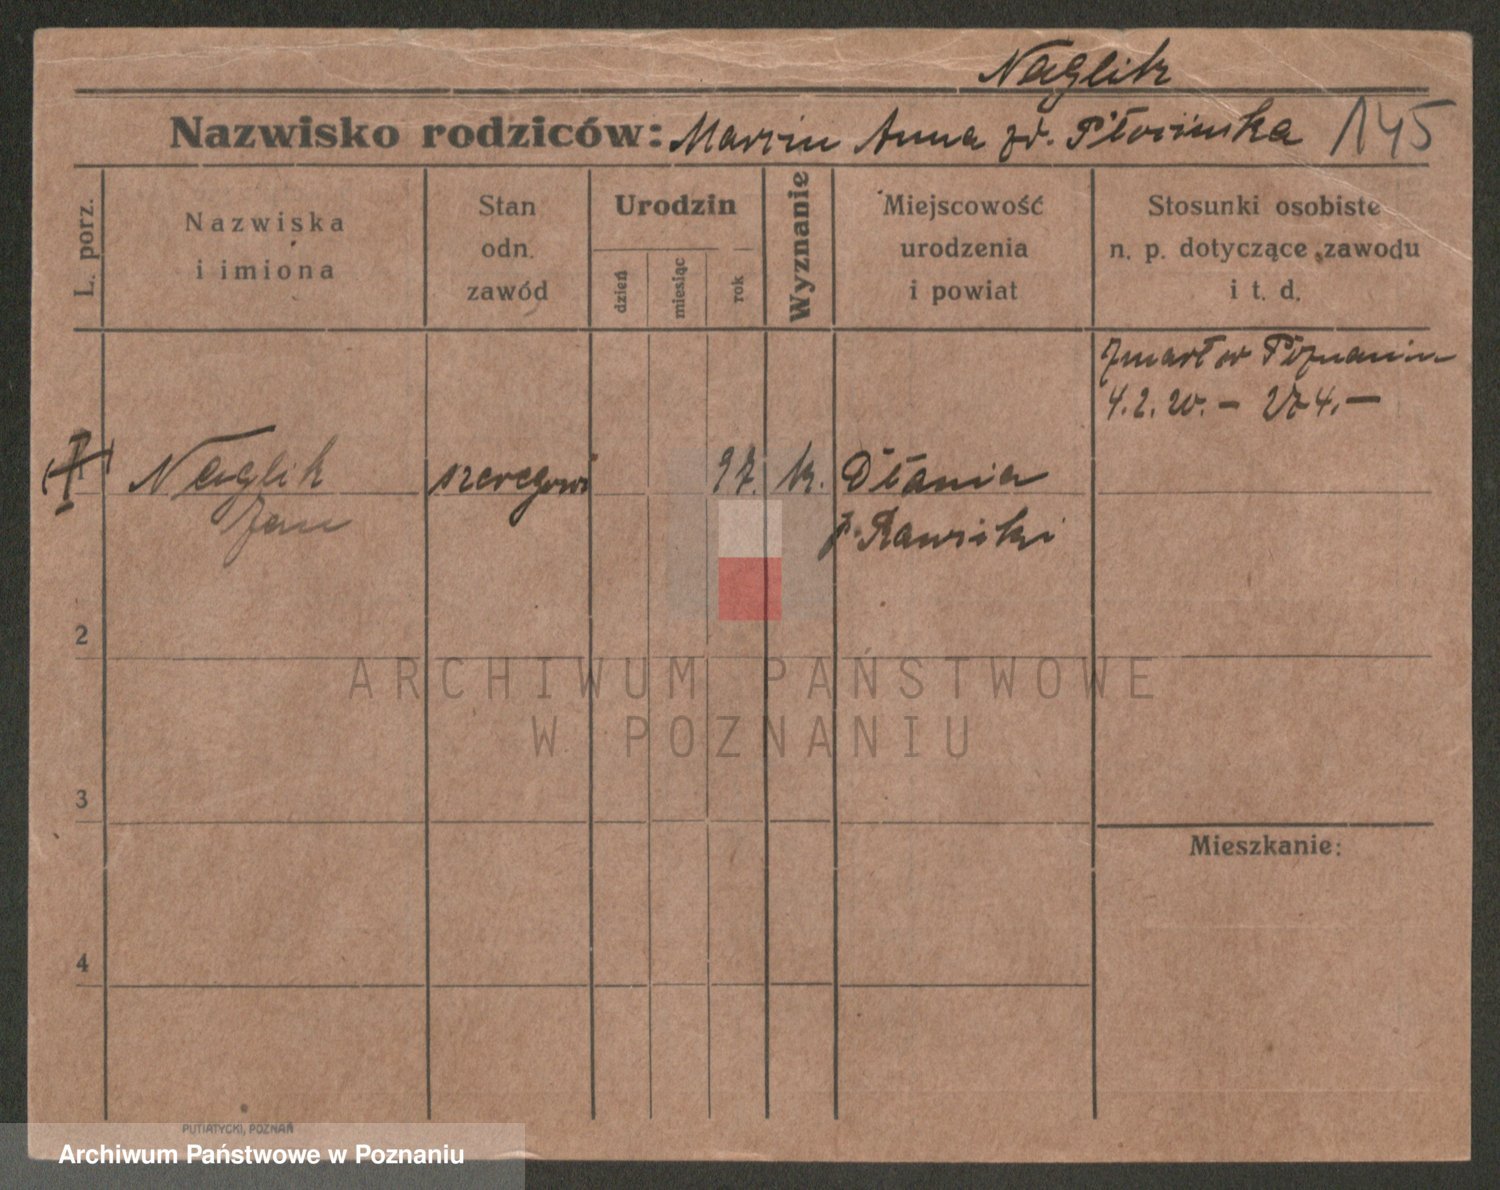 Naglik
Nazwisko rodziców: Marcin Anna zd. Płocińska 145
L. porz.
Nazwiska
i imiona
Stan
odn.
zawód
Urodzin
dzień
miesiąc
rok
Wyznanie
Miejscowość
urodzenia
i powiat
Stosunki osobiste
n. p. dotyczące zawodu
i t. d.
zmarł w Poznaniu
4.2.20. - 274. -
Naglik
Jan
szeregowi
97.
k.
Dłonia
p. Rawicki
2
3
4
Mieszkanie:
PUTIATYCKI, POZNAŃ
ARCHIWUM PAŃSTWOWE
W POZNANIU
Archiwum Państwowe w Poznaniu